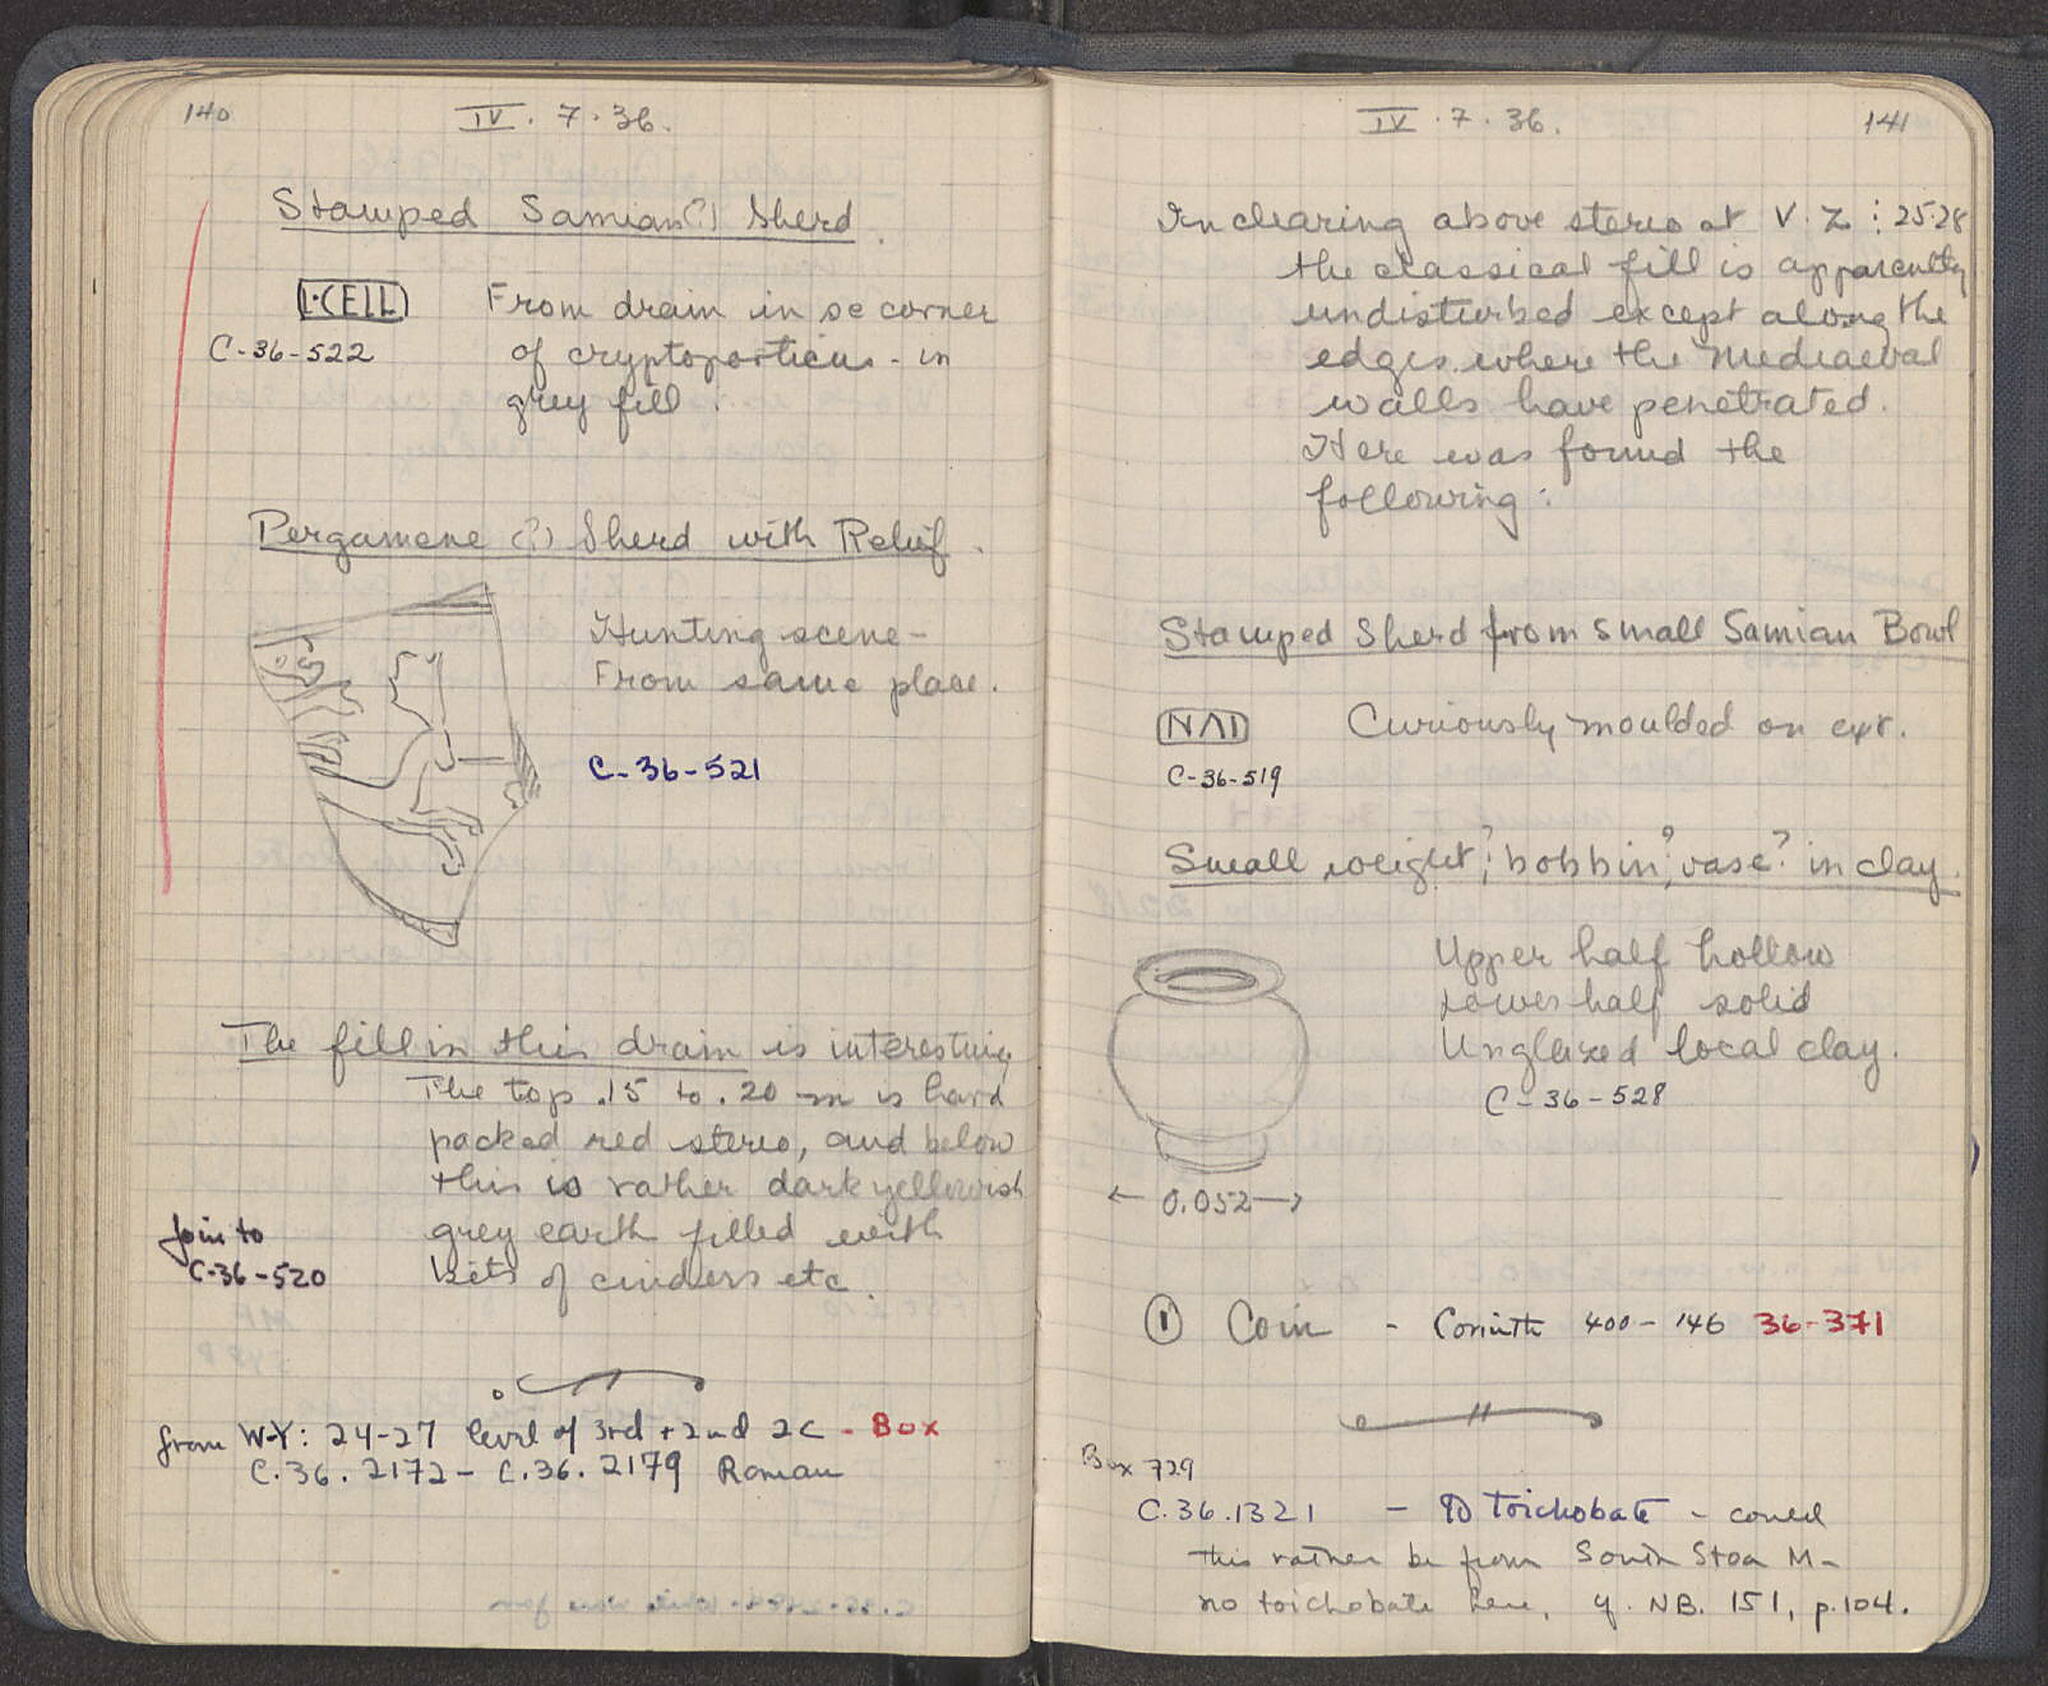 140
IV . 7 . 36.
Stamped Samian (?) Sherd.
L·CELL
From drain in se corner
C-36-522
of cryptoporticus - in
grey fill.
Pergamene (?) Sherd with Relief.
Hunting scene -
From same place.
C-36-521
The fill in this drain is interesting
The top .15 to .20 m is hard
packed red stereo, and below
this is rather dark yellowish
grey earth filled with
bits of cinders etc.
Join to
C-36-520
from W-Y: 24-27 level of 3rd + 2nd 2C - Box
C.36.2172 - C.36.2179 Roman
IV . 7 . 36.
141
In clearing above stereo at V-Z : 25-28
the classical fill is apparently
undisturbed except along the
edges where the Mediaeval
walls have penetrated.
Here was found the
following:
Stamped Sherd from small Samian Bowl
NAI
Curiously moulded on ext.
C-36-519
Small weight?, bobbin?, vase? in clay.
Upper half hollow
Lower half solid
Unglazed local clay.
C-36-528
← 0.052 →
① Coin - Corinth 400-146 36-371
Box 729
C.36.1321 - toichobate - could
this rather be from South Stoa M-
no toichobate here, cf. NB. 151, p.104.